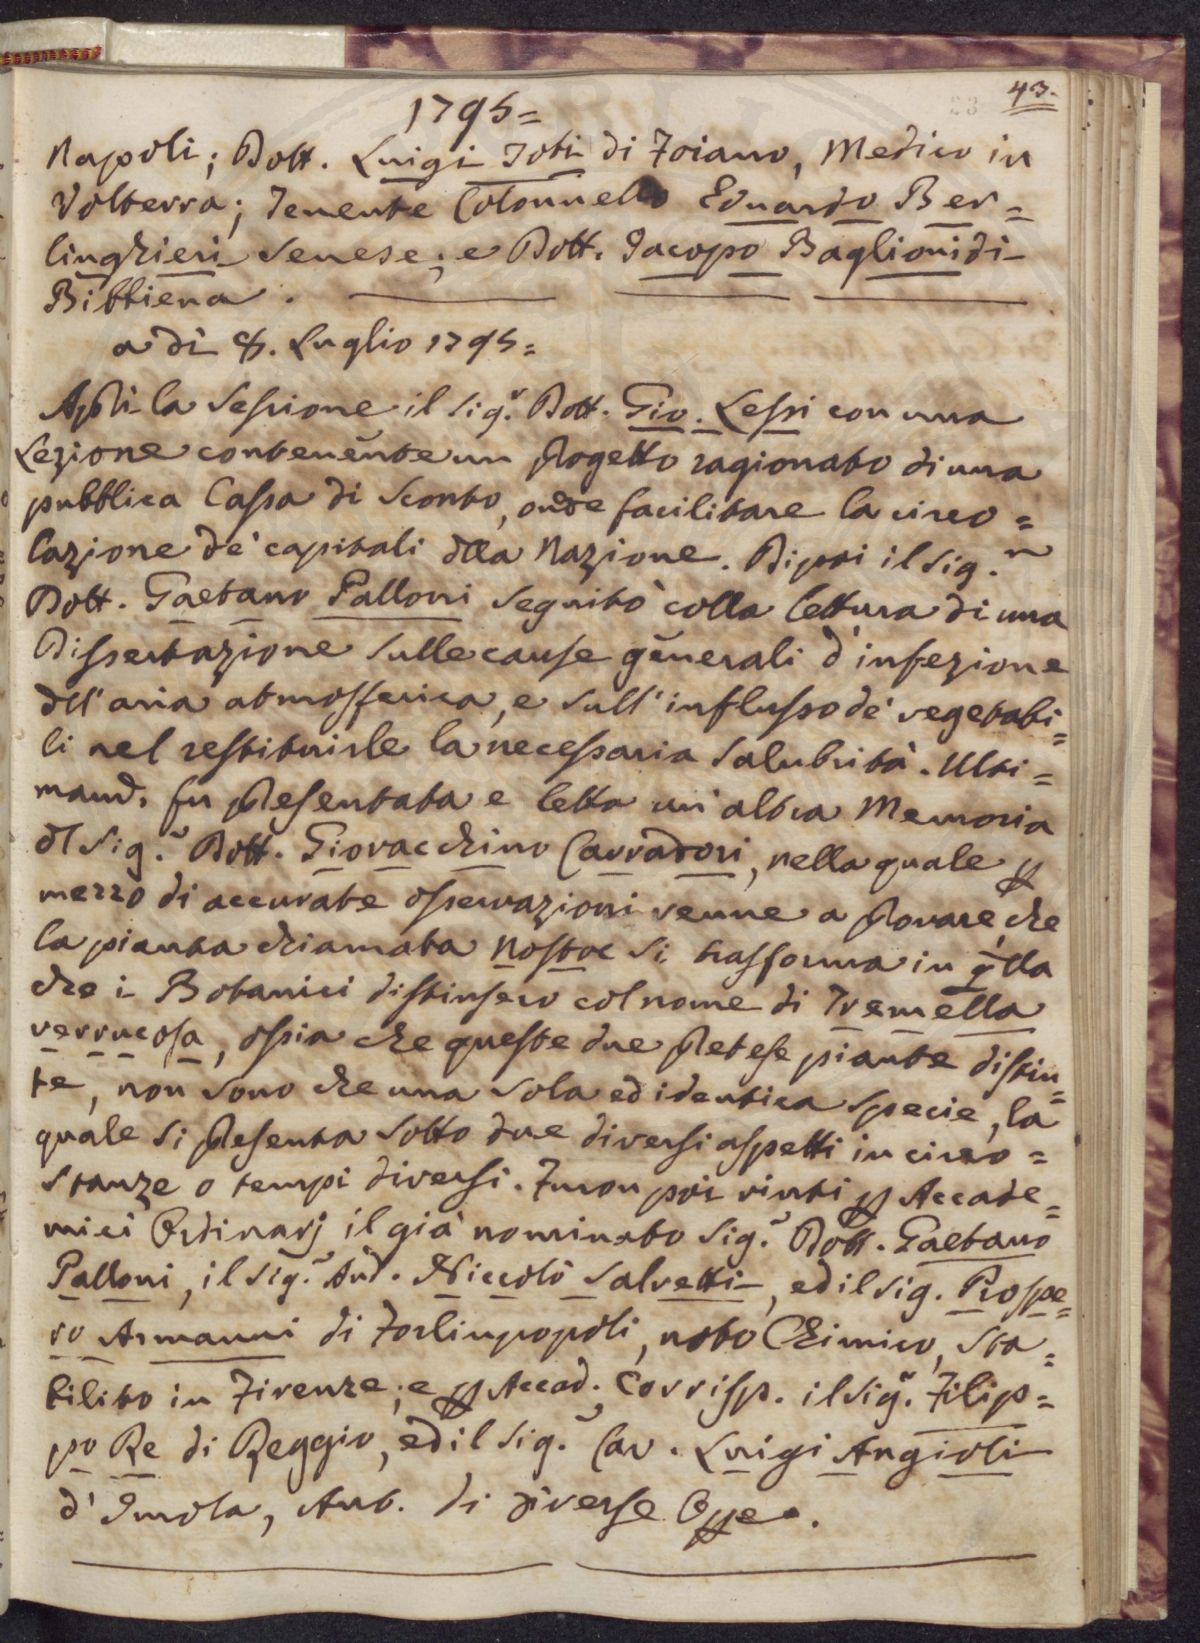 43.
1795=
Napoli; Dott. Luigi Toti di Foiano, Medico in
Volterra; Tenente Colonnello Eduardo Ber=
linghieri Senese; e Dott. Jacopo Baglioni di
Bibbiena.
a dì 8. Luglio 1795=
Aprì la Sessione il Sig.r Dott. Gio. Lessi con una
Lezione contenente un Progetto ragionato di una
pubblica Cassa di Sconto, onde facilitare la circo=
lazione de' capitali dlla Nazione. Dipoi il Sig.r
Dott. Gaetano Palloni seguitò colla lettura di una
Dissertazione sulle cause generali d'infezione
dll'aria atmosferica, e sull'influsso de' vegetabi=
li nel restituirle la necessaria salubrità. Ulti=
mam. fu presentata e letta un'altra Memoria
dl Sig.r Dott. Giovacchino Carradori, nella quale p
mezzo di accurate osservazioni venne a provare, che
la pianta chiamata Nostoc si trasforma in qlla
che i Botanici distinsero col nome di Tremella
verrucosa, ossia che queste due pretese piante distin=
te, non sono che una sola ed identica specie, la
quale si presenta sotto due diversi aspetti in circo=
stanze o tempi diversi. Furon poi vinti p Accade=
mici Ordinarj il già nominato Sig.r Dott. Gaetano
Palloni, il Sig.r Aud. Niccolò Salvetti, ed il Sig. Prospe=
ro Armanni di Forlimpopoli, noto Chimico, sta=
bilito in Firenze; e p Accad. Corrisp. il Sig.r Filip=
po Re di Reggio, ed il Sig.r Cav. Luigi Angioli
d'Imola, Aut. di diverse Oppe.